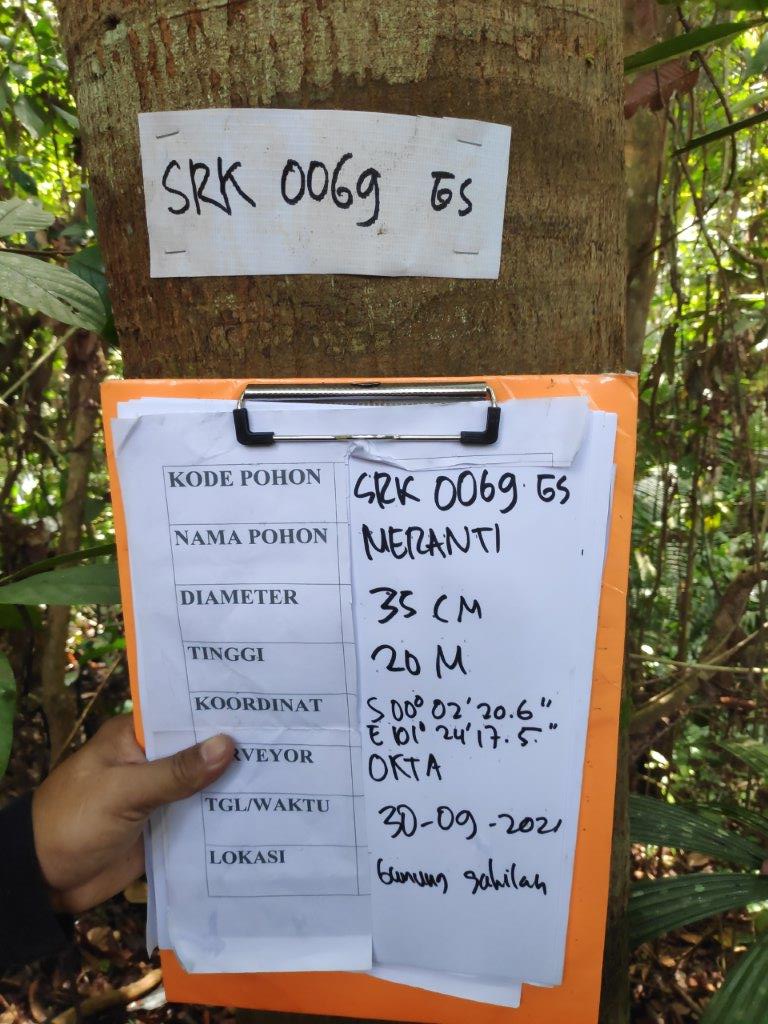 SRK 0069 GS
KODE POHON SRK 0069. GS
NAMA POHON MERANTI
DIAMETER 35 CM
TINGGI 20 M
KOORDINAT S 00° 02' 20.6"
E 101° 24' 17.5."
RVEYOR OKTA
TGL/WAKTU 30-09-2021
LOKASI Gunung sahilan